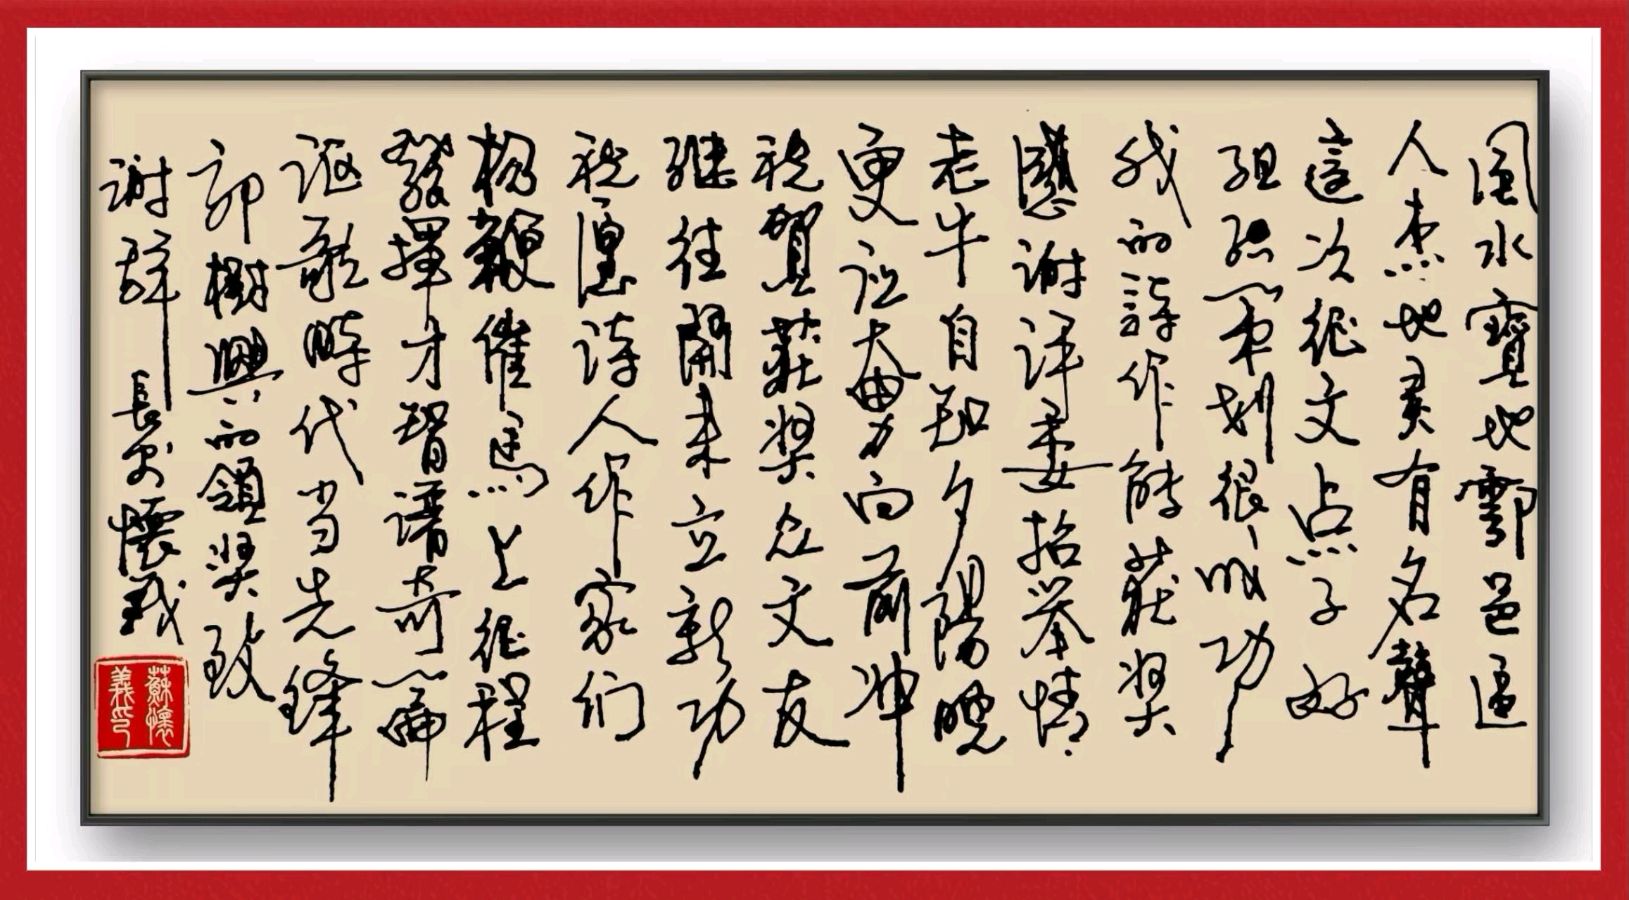 風水寶地鄠邑區
人杰地灵有名聲
這次征文点子好
組织策划很成功
我的詩作能获奖
感谢评委招举情
老牛自知夕陽晚
更须奋力向前冲
祝贺获奖众文友
继往開来立新功
祝愿诗人作家们
揚鞭催馬上征程
發揮才智谱奇篇
讴歌時代当先锋
郭樹興的領奖致
谢辞 長安懷義
蘇懷義印